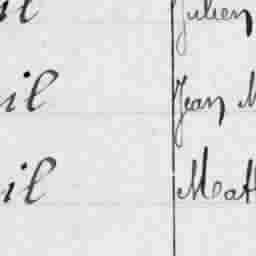 il Julien
il Jean M
il Mat